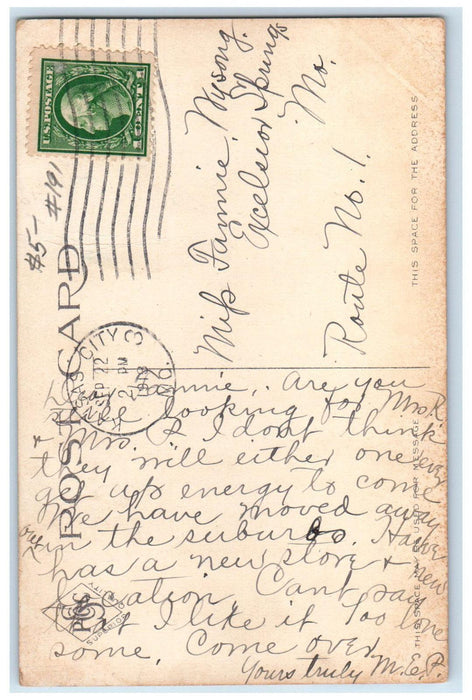 U.S. POSTAGE
1 CENT 1
$5- #191
POST CARD
KANSAS CITY
MO.
SEP 22
2 PM
1912
Miss Fannie Wysong.
Excelsior Springs
Route No. 1. Mo.
THIS SPACE FOR THE ADDRESS
THIS SPACE MAY BE USED FOR MESSAGE
Fannie. Are you
still looking for Mrs R.
+ Mrs P. I dont think
they will either one ever
get up energy to come
We have moved away
out in the suburbs.
has a new store + new
location. Cant say
I like it Too lone
some. Come over.
Yours truly M.E.P.
SUPERIOR QUALITY